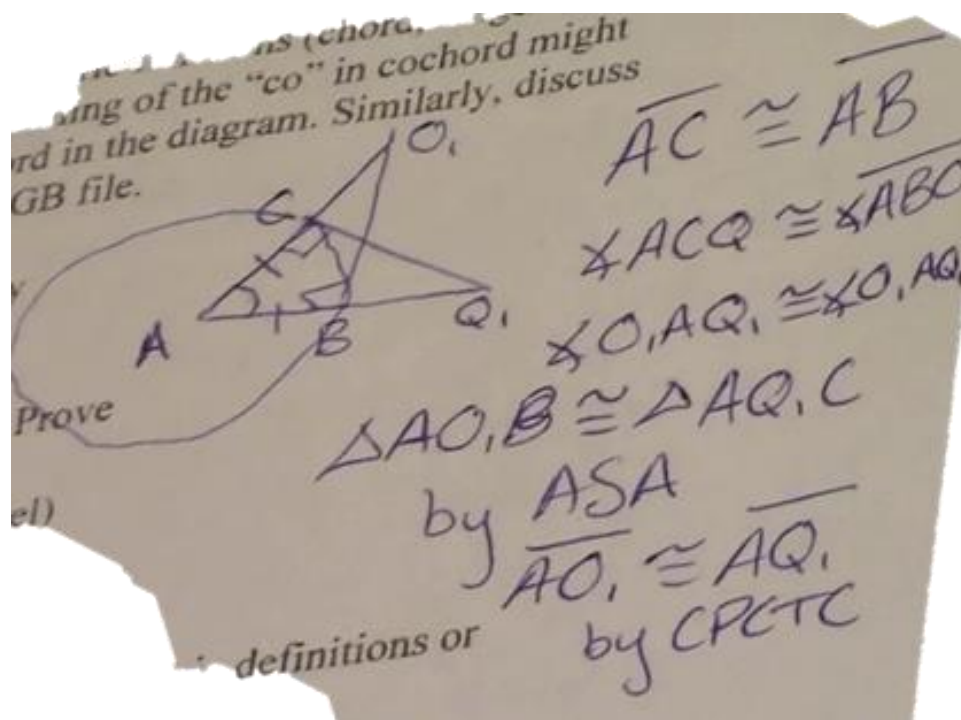 ing of the "co" in cochord might
rd in the diagram. Similarly, discuss
GB file.
O₁
C
A
B
Q₁
Prove
el)
definitions or
AC ≅ AB
∡ACQ ≅ ∡ABO
∡O₁AQ₁ ≅ ∡O₁AQ₁
△AO₁B ≅ △AQ₁C
by ASA
AO₁ ≅ AQ₁
by CPCTC